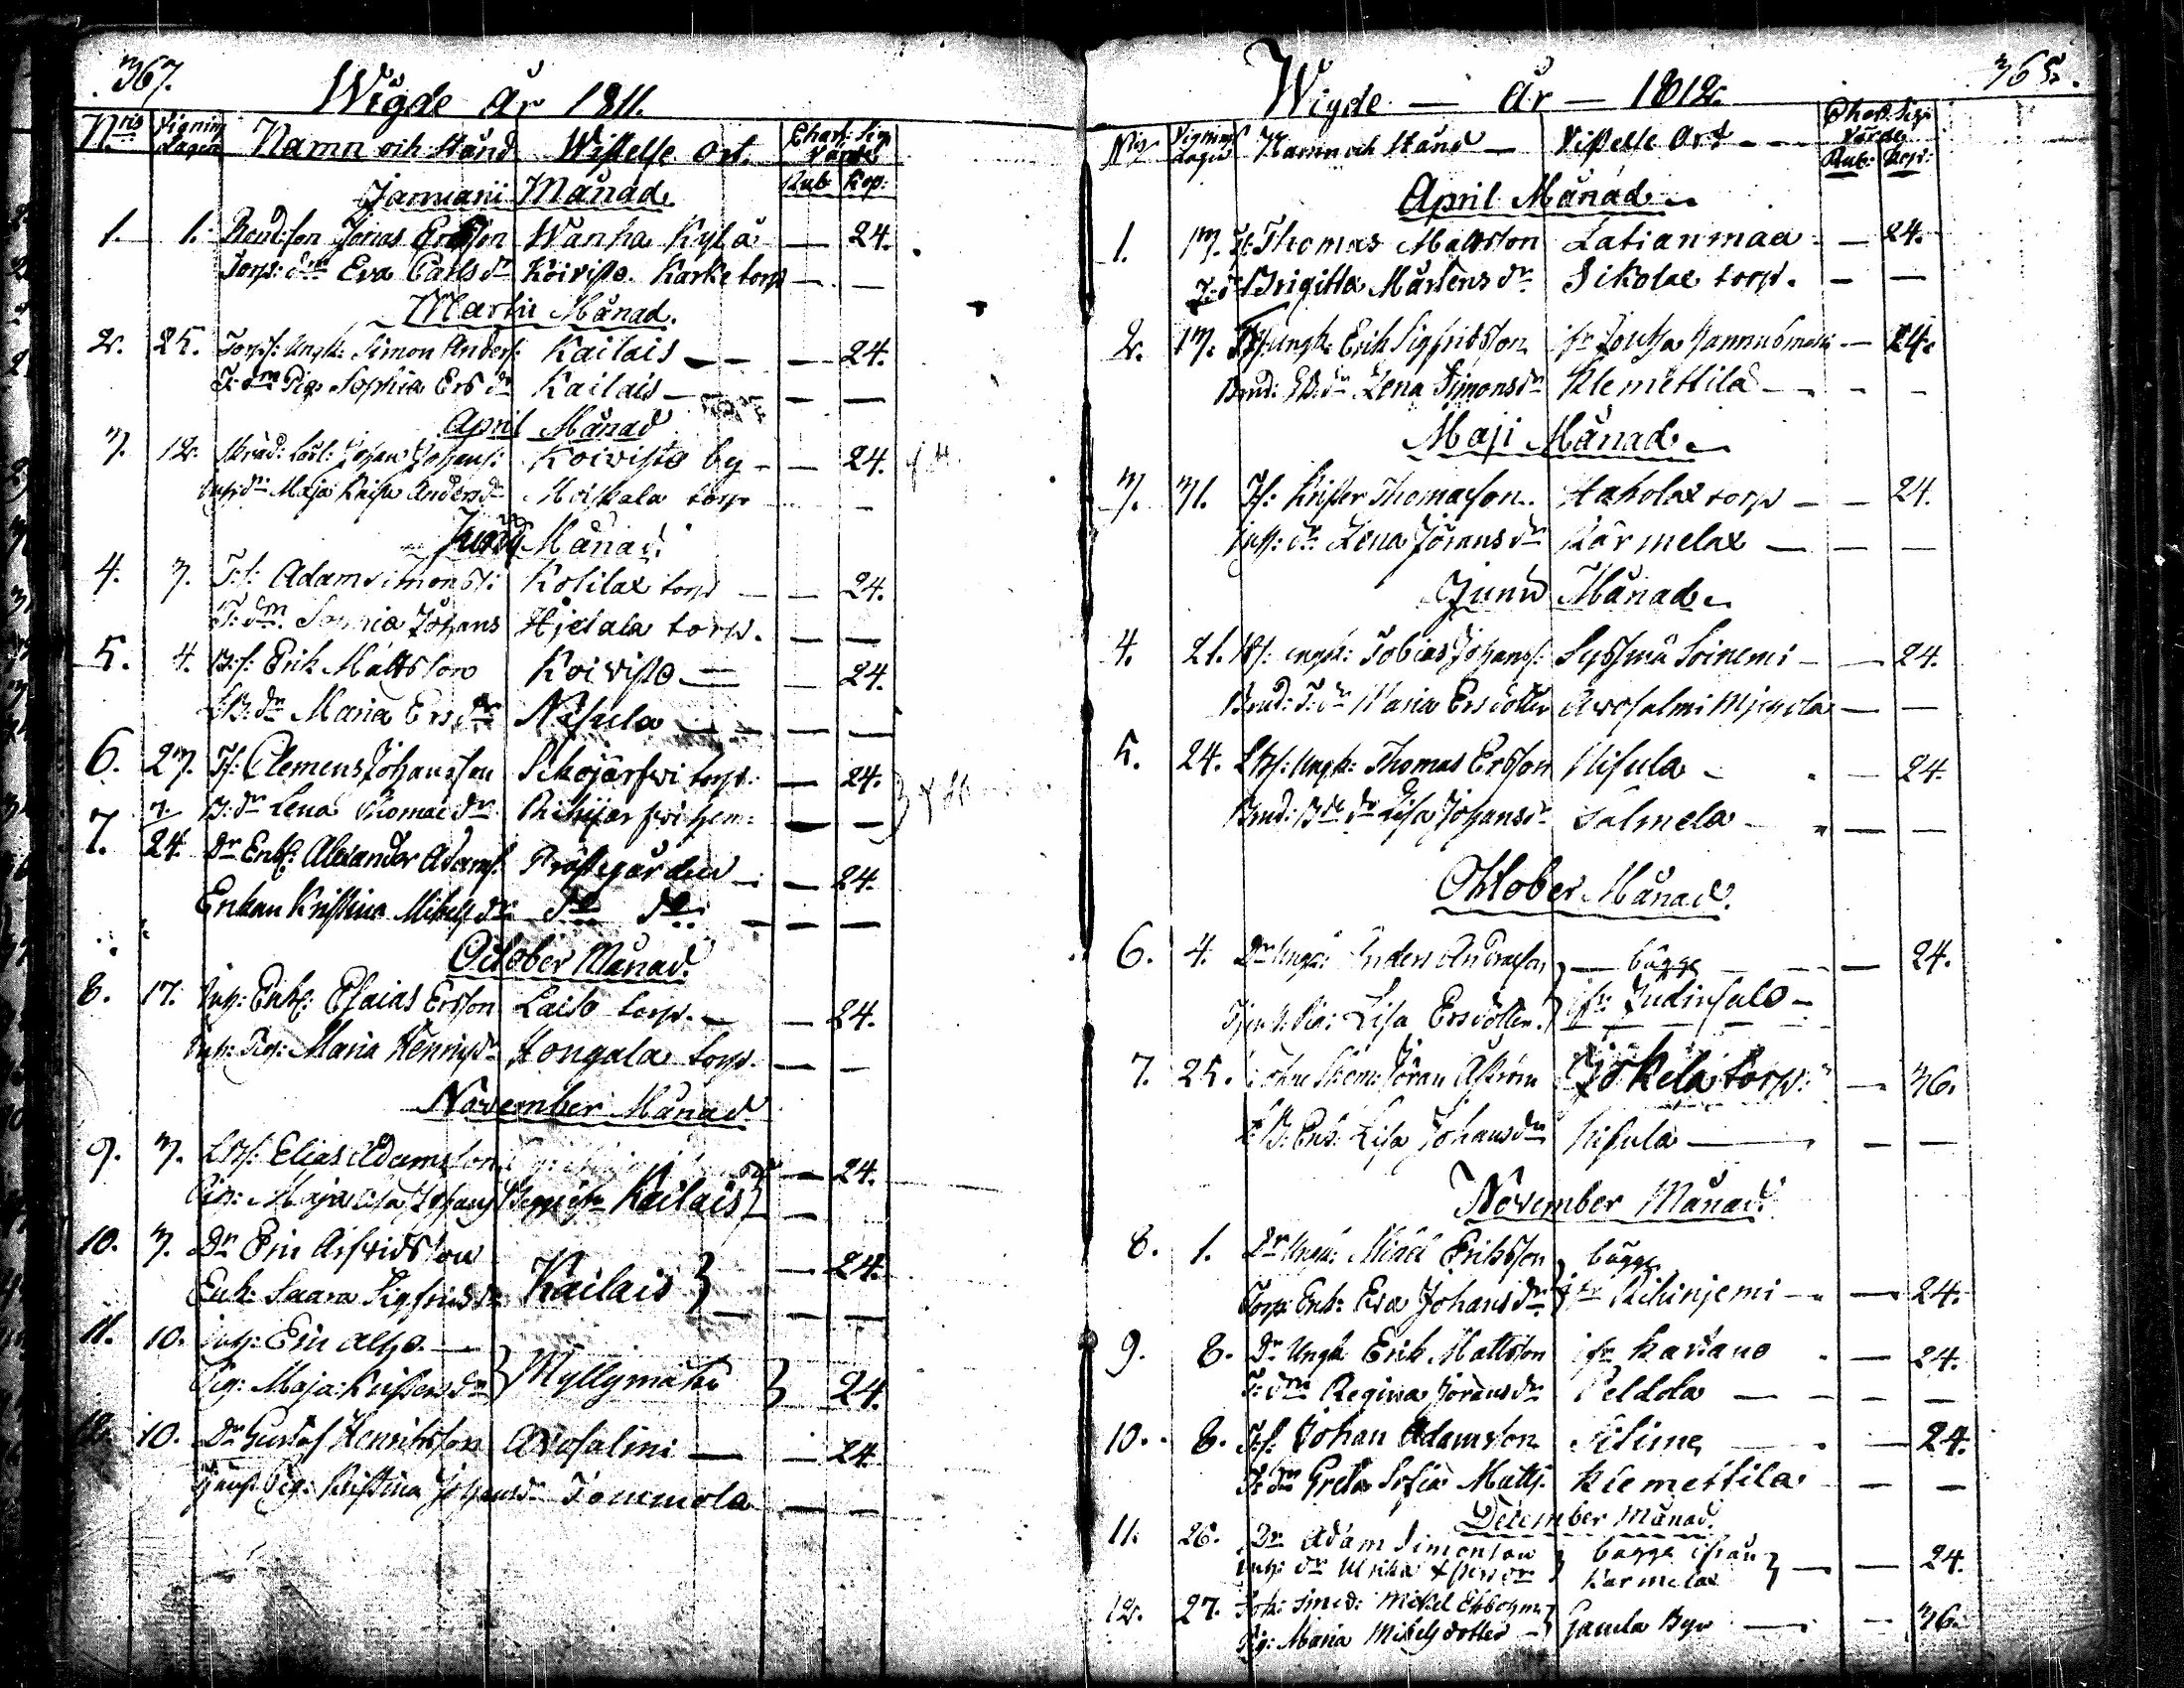 367.
Wigde År 1811.
Nris Vignings Dagen Namn och Stånd Wistelse Ort. Chart: Sig: Värde
Rub: Kop:
Januarii Månad.
1. 1. Bond:son Jonas Ersson Wanha Kylä — 24.
Torp: dr Eva Carls dr Koivisto Karke torp — —
Martii Månad.
2. 25. Torps: Ungk: Simon Anders: Kailais — — 24.
T: dr Pig: Sophia Ers dr Kailais — — —
April Månad
3. 12. Johan Johans: Koivisto by — — 24.
Inh: dr Maja Kaisa Anders dr Moiskala torp —
Månad.
4. 3. T:s: Adam Simonss: Kotilax torp — — 24.
T: dr. Johans Hjetala torp. — —
5. 4. B:s: Erik Mattsson Koivisto — — 24.
LB: dr Maria Ers dr Nisula — — —
6. 27. Ts: Clemens Johansson torp: — 24.
B: dr Lena Thomæ dr Rihijärfvi hem: — —
7. 24. Dr Enkl: Alexander Adams: Prästegården — — 24.
Enkan Kristina Mikels dr do do — — —
October Månad.
8. 17. Inh: Enkl: Esaias Ersson Laiso torp. — — 24.
Inh: Pig: Maria Henrics dr Hongala torp. — —
November Månad
9. 3. LBs: Elias Adamsson — 24.
Pig: Maja Lisa Johans Kailais —
10. 3. Dr Eric Arfvidsson — 24.
Enk: Saara Sigfrids dr Kailais — — —
11. 10. Inh: Eric Alho. —
Pig: Maja: Kristers dr Myllymäki 24.
12. 10. Dr Gustaf Henriksson Avosalmi — — 24
Pig: Kristina Johans dr Tommola — —
365.
Wigde — År — 1812.
Nris Vignings Dagen Namn och Stånd — Vistelse Ort — — Chart: Sig: Värde
Rub: Kop:
April Månad
1. 13. Ts: Thomas Mattsson Latianmaa — — 24.
T: dr Brigitta Mårtens dr Sikolax torp. — —
2. 13. Ungk: Erik Sigfridsson fr Joutsa — 24.
Brud: LB: dr Lena Simons dr Klemettilä — — —
Maji Månad
3. 31. Ts: Krister Thomasson. Haholax torp — — 24.
Inh: dr Lena Jörans dr Kärmelax — — —
Junii Månad
4. 21. Bs: ungk: Tobias Johanss: Sysmä Soinemi — — 24.
Brud: T: dr Maria Ersdotter Avosalmi — —
5. 24. LBs: Ungk: Thomas Ersson Nisula — — 24.
Brud: dr Lisa Johans dr Salmela — — —
Oktober Månad.
6. 4. Dr Ungk: Anders Andersson — bägge — — 24.
Pig: Lisa Ersdotter. fr Judinsalo —
7. 25. Jöran Åström Jokela torp: — 36.
LB: Enk: Lisa Johans dr Nisula — — —
November Månad.
8. 1. Dr Ungk: Mickel Eriksson bägge
Torp: Enk: Eva Johans dr fr Rihinjemi — — 24.
9. 8. Dr Ungk Erik Mattsson fr — 24.
T: dr Regina Jörans dr Peldola — — —
10. 8. Ts: Johan Adamsson — 24.
T: dr Greta Sofia Matts. Klemettila — —
December Månad.
11. 26. Dr Adam Simonson bägge ifrån — — 24.
Inh: dr Ulrika Kärmelax
12. 27. Smed: Mikel Ekbohm
Pig: Maria Mikels dotter — Gamla Byn — — 36.